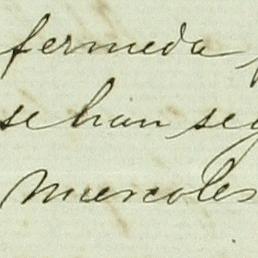 fermeda
se han seg
Mercoles